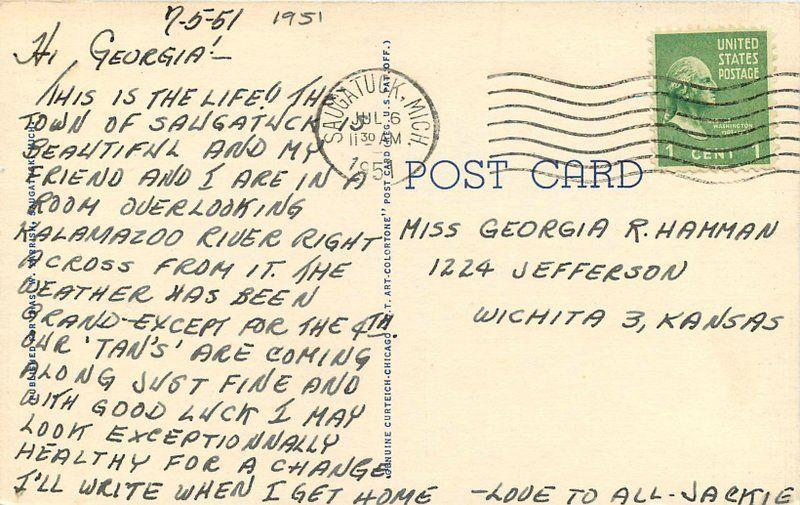 7-5-51 1951
Hi, GEORGIA!-
THIS IS THE LIFE!! THE
TOWN OF SAUGATUCK IS
BEAUTIFUL AND MY
FRIEND AND I ARE IN A
ROOM OVERLOOKING
KALAMAZOO RIVER RIGHT
ACROSS FROM IT. THE
WEATHER HAS BEEN
GRAND-EXCEPT FOR THE 4TH.
OUR 'TAN'S' ARE COMING
ALONG JUST FINE AND
WITH GOOD LUCK I MAY
LOOK EXCEPTIONNALLY
HEALTHY FOR A CHANGE
I'LL WRITE WHEN I GET HOME -LOVE TO ALL-JACKIE
SAUGATUCK, MICH.
JUL 6
11 30 AM
1951
UNITED
STATES
POSTAGE
WASHINGTON
1 CENT 1
POST CARD
MISS GEORGIA R. HAMMAN
1224 JEFFERSON
WICHITA 3, KANSAS
GENUINE CURTEICH-CHICAGO "C.T. ART-COLORTONE" POST CARD (REG. U.S. PAT. OFF.)
PUBLISHED BY SAUGATUCK, MICH.